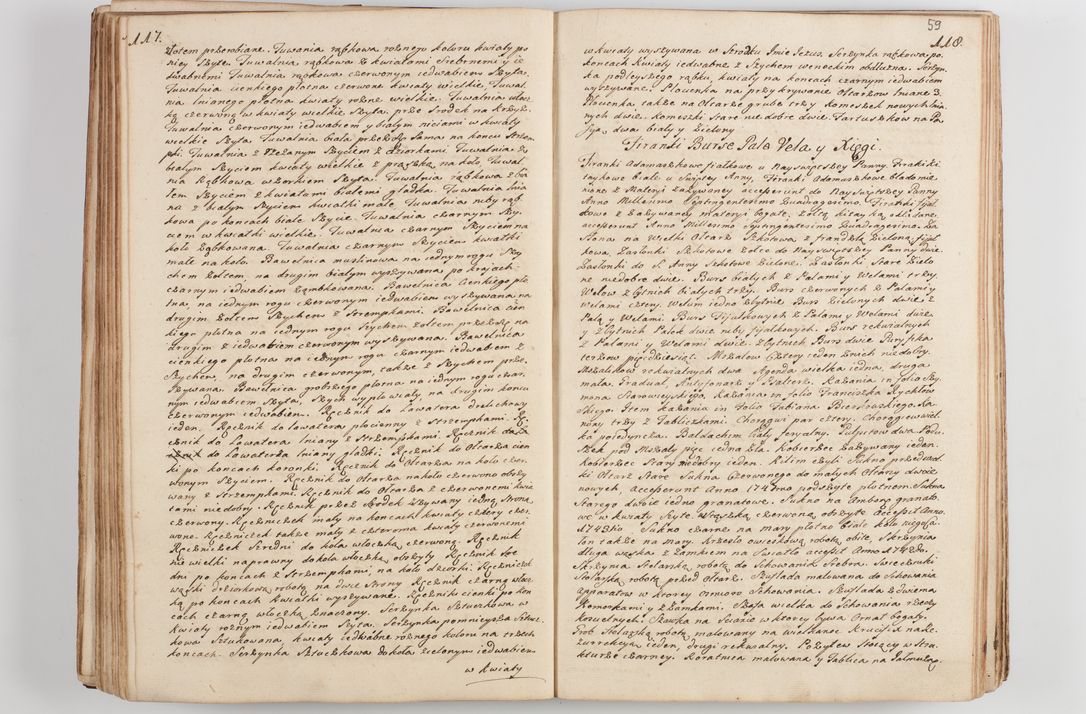 117.
złotem przerobiane. Tuwania rąbkowa rożnego koloru kwiaty po
niey szyte. Tuwalnia rąbkowa z kwiatami srebrnemi y ie
dwabnemi Tuwalnia rąbkowa czerwonym iedwabiem szyta.
Tuwalnia cienkiego płotna czerwone kwiaty wielkie. Tuwal-
nia lnianego płotna kwiaty rożne wielkie. Tuwalnia włocz
ką czerwoną w kwiaty wielkie szyta, przez srodek na krzyż.
Tuwalnia czerwonym iedwabiem y białym niciami w kwiaty
wielkie szyta. Tuwalnia biała przez się sama na koncu strzem
pki. Tuwalnia z rżezanym szyciem z dziorkami. Tuwalnia z
białym szyciem kwiaty wielkie z prążką na koło, Tuwal
nia rąbkowa wzorkiem szyta. Tuwalnia rąbkowa z bia
łem szyciem z kwiatami białemi gładka. Tuwalnia lnia
na z białym szyciem kwiatki małe. Tuwalnia niby rąb
kowa po koncach białe szycie. Tuwalnia czarnym szy
ciem w kwiatki wielkie. Tuwalnia czarnym szyciem na
koło ząbkowana. Tuwalnia czarnym szyciem kwiatki
małe na koło. Bawelnica muslinowa na iednym rogu szy
chem zołtem, na drugim białym wyszywana po krajach
czarnym iedwabiem ząmbkowana. Bawełnica cienkiego pło
tna, na iednym rogu czerwonym iedwabiem wyszywana na
drugim zołtem szychem z strzempkami. Bawełnica cien
kiego płotna na iednym rogu szychem zołtem przeszyta na
drugim z iedwabiem czerwonym wyszywana. Bawełnica
cienkiego płotna na iednym rogu czarnym iedwabiem z
szychem, na drugim czerwonym, także z szychem prze
szywana. Bawełnica grobszego płotna na iednym rogu czar
nym iedwabiem szyta. szych wypłowiały, na drugim koncu
czerwonym iedwabiem. Ręcznik do Lawatera drelichowy
ieden. Ręcznik do lawatera płocienny z strzempkami. Rę
cznik do Lawatera lniany z strzempkami. Ręcznik do Lawaterza lniany gładki. Ręcznik do Ołtarza cien
ki po koncach koronki. Ręcznik do Ołtarza na koło czer
wonym szyciem. Ręcznik do Ołtarza na koło czerwono obszy
wany z strzempkami. Ręcznik do Ołtarza z czerwonemi kwia
tami niedobry. Ręcznik przez srodek zszywany iedną stroną
czerwony. Ręczniczek mały na koncach kwiaty cztery czer
wone. Ręczniczek także mały z czteroma kwiaty czerwonemi
Ręczniczek sredni do koła włoczką czerwoną. Ręcznik
nie wielki naprawny dokoła włoczką obszyty Ręcznik sre
dni po koncach z strzempkami, na koło dziorki. Ręczniczek
wązki dziorkową robotą na dwie strony Ręcznik czarną włocz
ką po koncach kwiatki wyszywane. Ręcznik cienki po kon
cach czarną włoczką znaczony. Serzynka sztuczkowa w
kwiaty rożnym iedwabiem szyta. Serzynka pomnieysza sztucz
kowa sztukowana, kwiaty iedwabne rożnego koloru na trzech
koncach. Serzynka sztuczkowa do koła zielonym iedwabiem
w kwiaty
59
118.
w kwiaty wyszywana w srodku Imie Iezus. Serzynka rąbkowa po
koncach kwiaty iedwabne z szychem weneckim obdłużna. Serzyn
ka podleyszego rąbku, kwiaty na koncach czarnym iedwabiem
wyszywane. Płocienka na przykrywanie Ołtarzow lniane 3.
Płocienka także na Ołtarze grube trzy Komeszek nowych lnia
nych dwie. Komeszki stare nie dobre dwie. Fartuszkow na Pa
syją dwa biały y zielony
Firanki Burse Pale Vela y Xięgi.
Firanki Adamaszkowe fiałkowe u Nayswiętszey Panny, Firanki ki
taykowe białe u Swiętey Anny, Firanki Adamaszkowe bładomie
niane z Materyi zażywoney accesserunt do Nayswiętszey Panny
Anno Millesimo Septingentesimo Quadragesimo. Firanki fiał
kowe z zażywaney materyi bogate, zołtą kitayką odlitane,
accesserunt Anno Millesimo Septingentesimo Quadragesimo. Za
słona na Wielki Ołtarz szkotowa z frandzlą zieloną, fijał
kowa. Zasłonki szkotowe zołte do Nayswiętszey Panny dwie
Zasłonki do S. Anny szkotowe zielone. Zasłonki stare zielo
ne niedobre dwie. Burs białych z Palami y Welami trzy
Welow zbytnich białych trzy. Burs czerwonych z Palami y
Welami cztery. Welum iedno zbytnie Burs zielonych dwie z
Palą y Welami. Burs fijałkowych z Palami y Welami dwie
y zbytnich Palek dwie niby fijałkowych. Burs rekwialnych
z Palami y Welami dwie. zbytnich Burs dwie Puryfika
terzow pięcdziesiąt. Mszałow cztery ieden z nich niedobry.
Mszalikow rekwialnych dwa Agenda wielka iedna, druga
mała. Graduał, Antyfonarz y Psałterz. Kazania in folio Szy
mona Starowieyskiego, Kazania in folio Franciszka Rychłow
skiego. Item Kazania in folio Fabiana Bierkowskiego. Ka
nony trzy z Tabliczkami. Chorągwi par cztery. Chorągiew wiel
ka poiedyncza. Baldachim biały feryalny. Pulpitow dwa Podu
szek pod Mszały pięc iedna zła. Kobierzec zażywany ieden.
Kobierzec stary niedobry ieden. Kilim czyli sukno przed wiel
ki Ołtarz stare sukna czerwonego do małych Ołtarzy dwoie
nowych, accesserunt Anno 1747mo podszyte płotnem. Sukna
starego dwoie iedno granatowe. Sukno na Ambonę granato
we w kwiaty szyte wstążką czerwoną obszyte accessit Anno.
1742do. Sukno czarne na mary płotno białe koło niego, Ca
łon także na mary. Krzesło owieszkową robotą obite, skrzynia
długa wązka z Zamkiem na swiatło accessit Anno 1742do.
Skrzynia stolarską robotą do schowania srebra. Swieczniki
stolarską robotą przed Ołtarz. Szuflada malowana do schowania
apparatow w ktorey osmioro schowania. Szuflada z dwiema
Komorkami y zamkami. Szafa wielka do schowania rzeczy
kosztelnych. Szawka na swiatło w ktorey bywa Ornat bogaty.
Grob stolarską robotą malowany na wielkanoc Krucyfix na Re
zurrektyią ieden, drugi rekwialny. Pozytyw stoiący w stru
kturze czarney. Koratnica malowana y Tablica na Palmatorz.